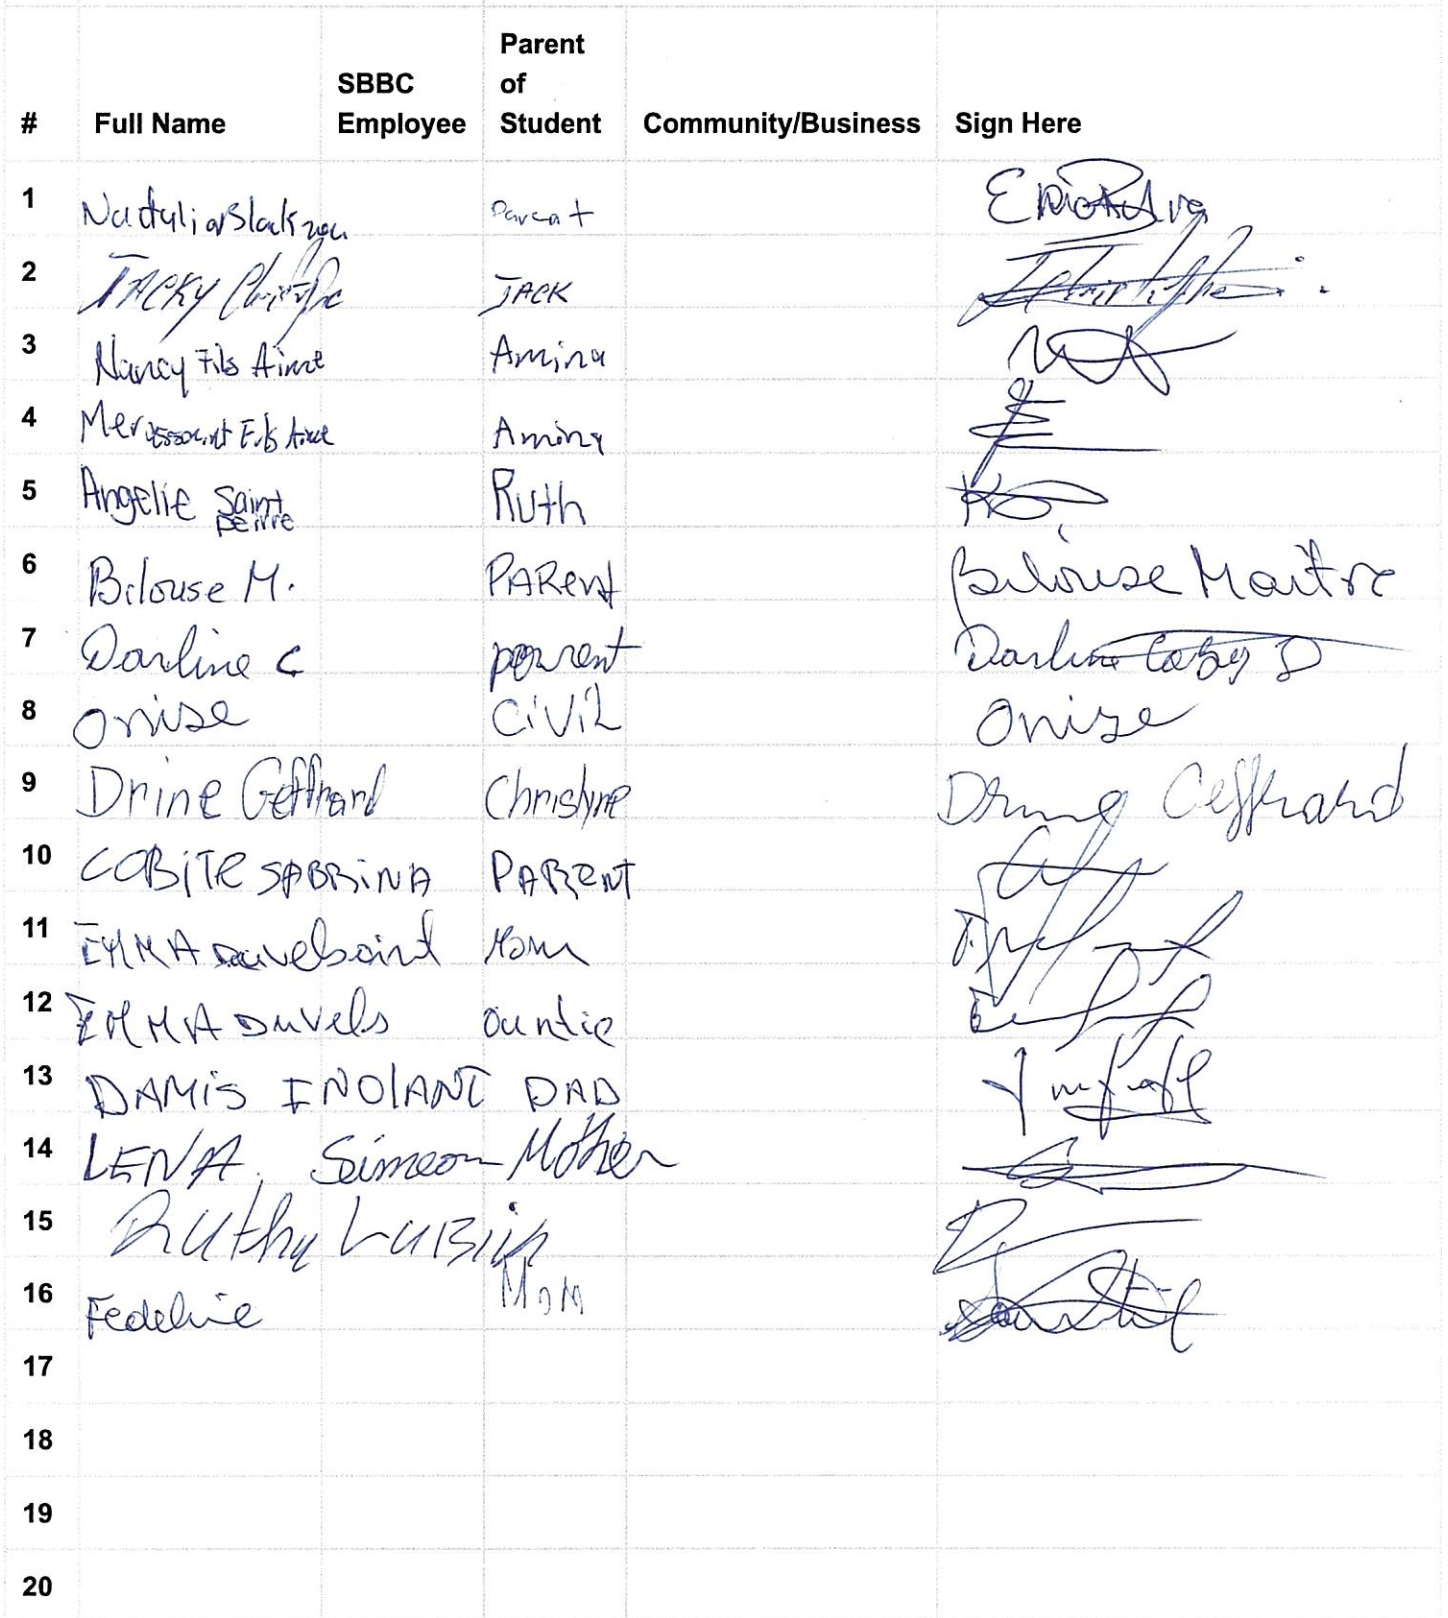 # Full Name SBBC Employee Parent of Student Community/Business Sign Here
1 Parent
2 JACKY JACK
3 Nancy Fils Aime Amina
4 Fils Aime Amina
5 Angelie Saint peirre Ruth
6 Bilouse M. PARent Bilouse Maitre
7 Darline C parent Darline
8 Onise CiViL Onise
9 Drine Geffrard Christyne Drine Geffrard
10 COBiTE SABRiNA PARENT
11 EMMA Mom
12 EMMA Duvels auntie
13 DAMiS INOlANT DAD
14 LENA. Simeon Mother
15 Ruthy LuBin
16 Fedeline MOM
17
18
19
20